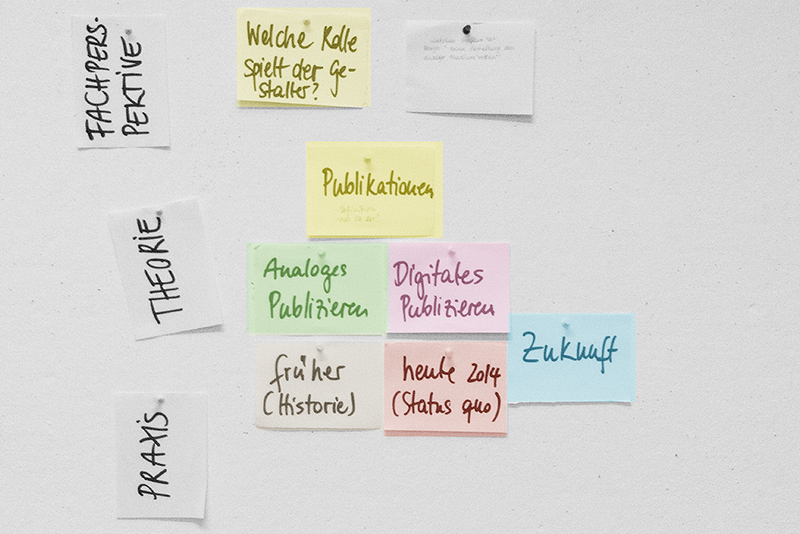 FACHPERS-
PEKTIVE
Welche Rolle
spielt der Ge-
stalter?
Publikationen
THEORIE
Analoges
Publizieren
Digitales
Publizieren
Zukunft
früher
(Historie)
heute 2014
(Status quo)
PRAXIS